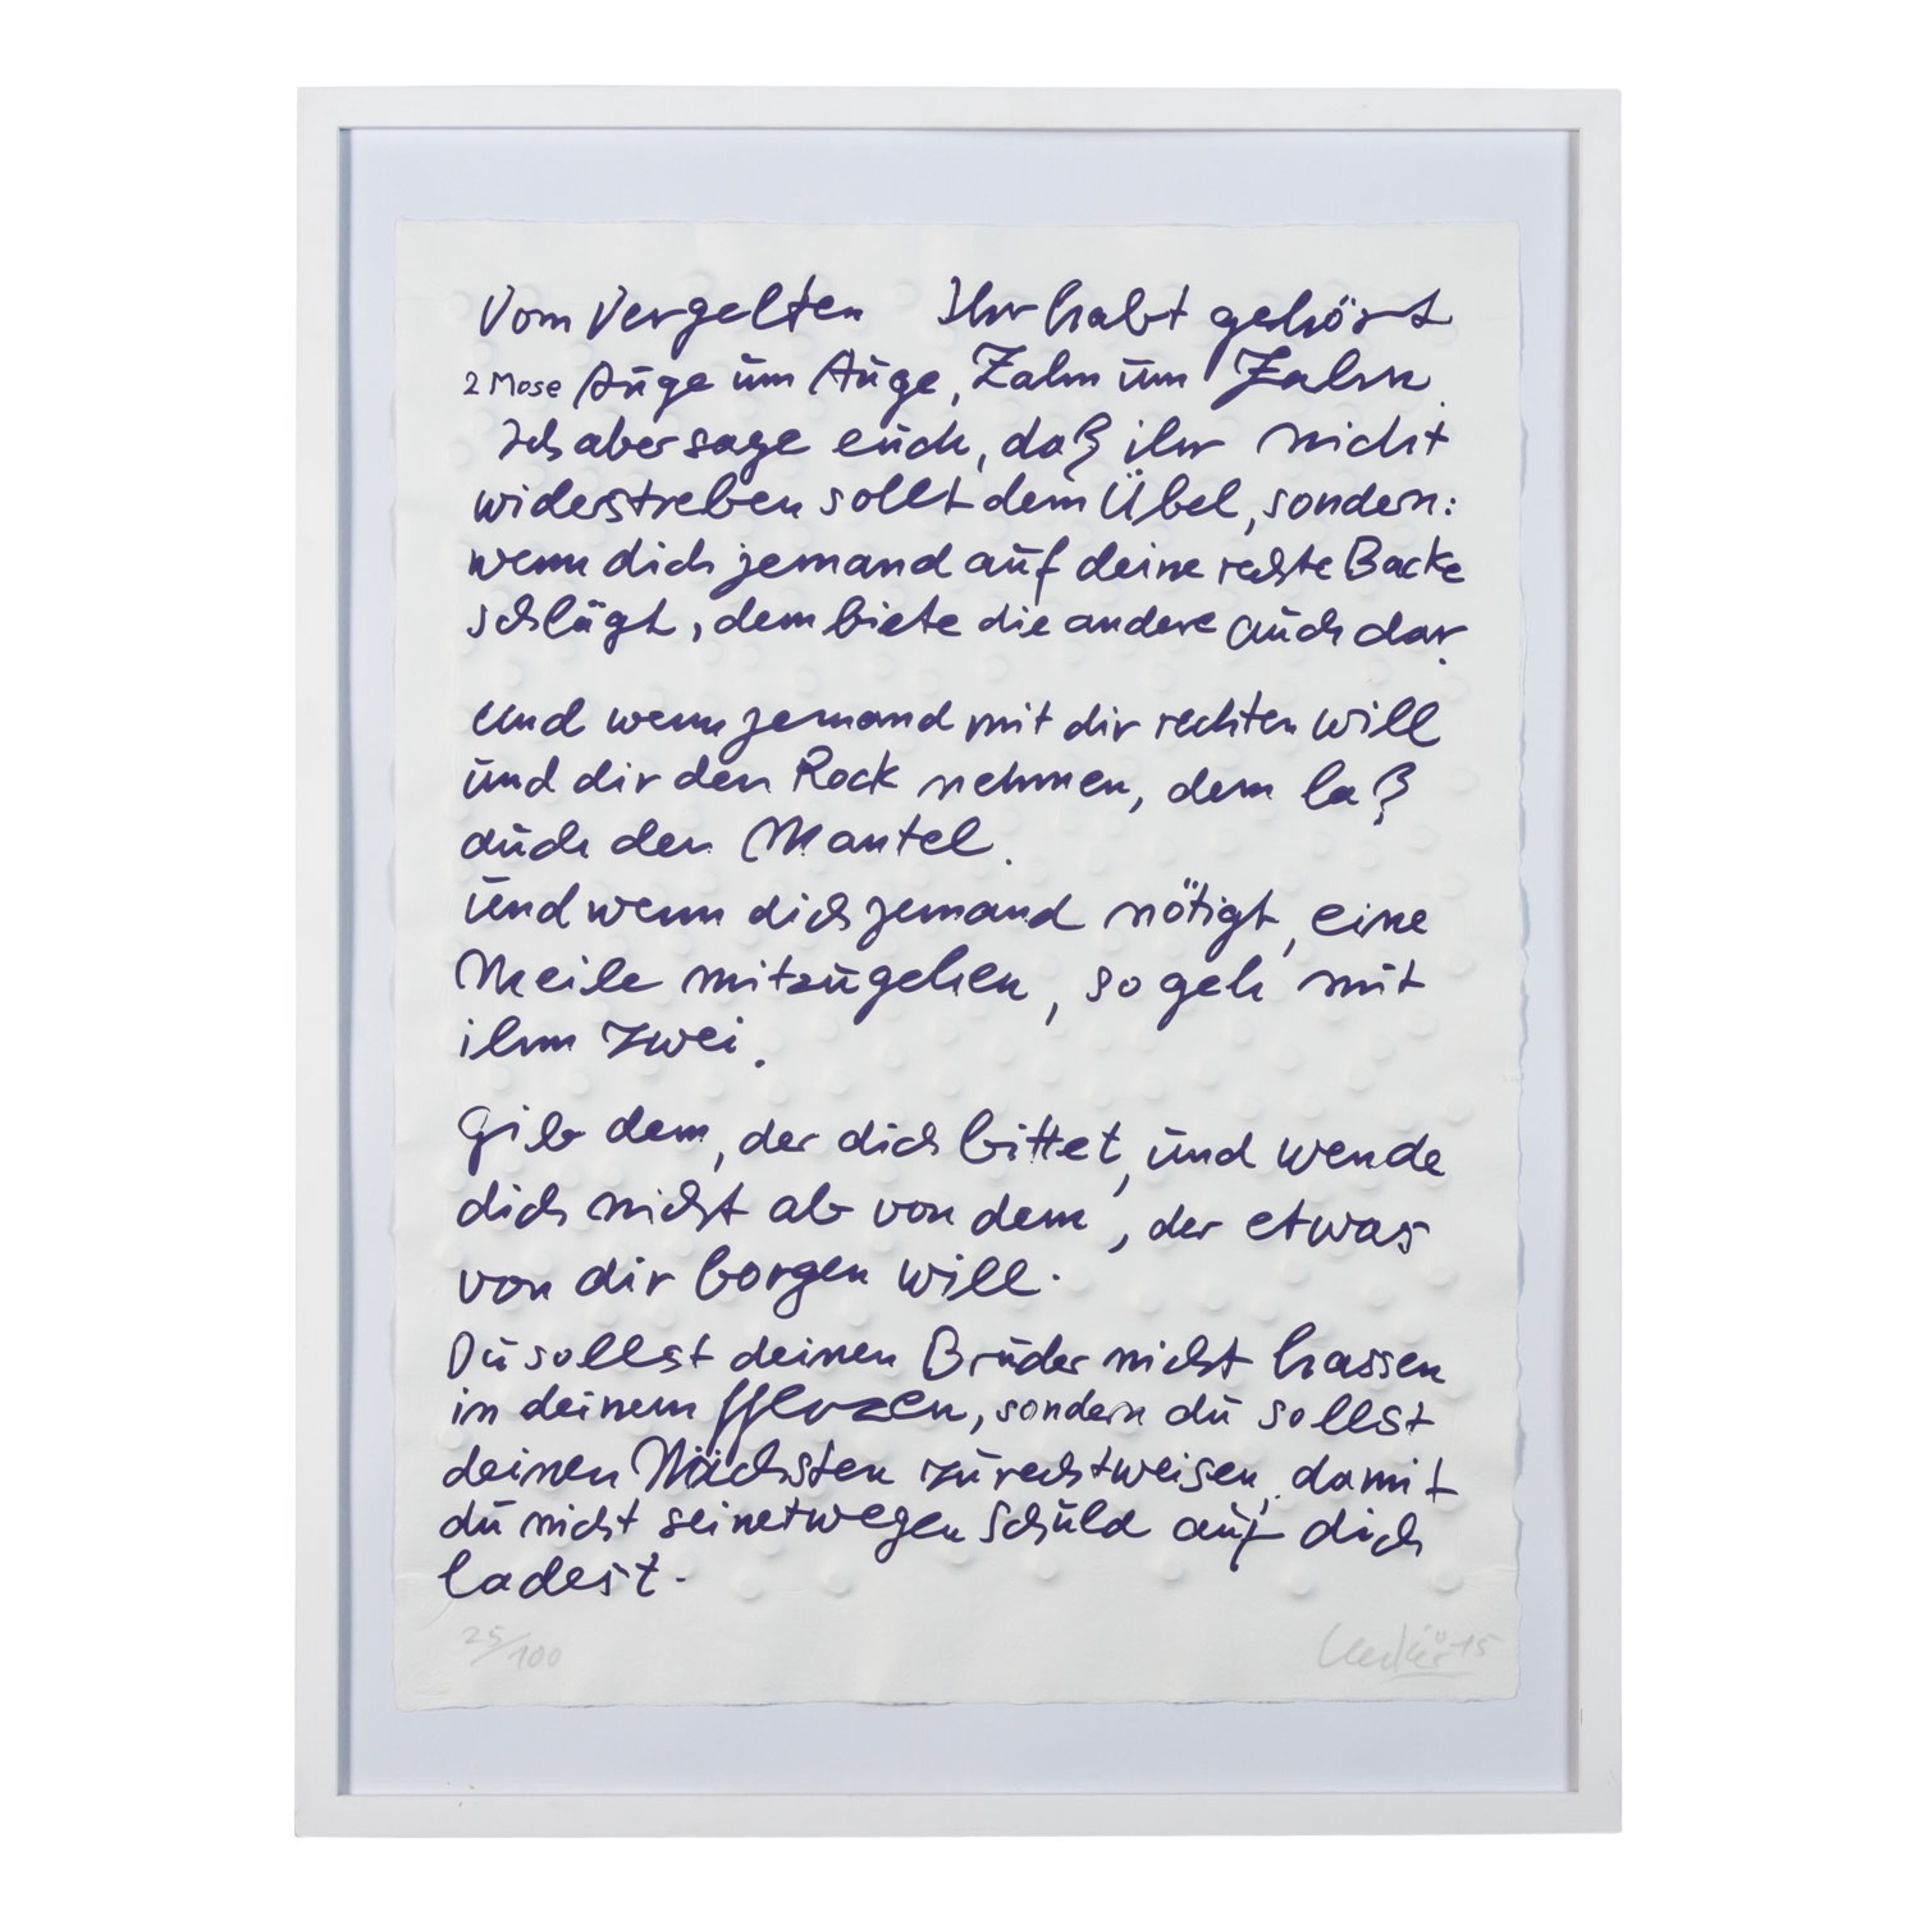 Vom Vergelten Ihr habt gehört
2 Mose Auge um Auge, Zahn um Zahn.
Ich aber sage euch, daß ihr nicht
widerstreben sollt dem Übel, sondern:
wenn dich jemand auf deine rechte Backe
schlägt, dem biete die andere auch dar.
Und wenn jemand mit dir rechten will
und dir den Rock nehmen, dem laß
auch den Mantel.
Und wenn dich jemand nötigt, eine
Meile mitzugehen, so geh mit
ihm zwei.
Gib dem, der dich bittet, und wende
dich nicht ab von dem, der etwas
von dir borgen will.
Du sollst deinen Bruder nicht hassen
in deinem Herzen, sondern du sollst
deinen Nächsten zurechtweisen, damit
du nicht seinetwegen Schuld auf dich
ladest.
25/100
Uecker 15